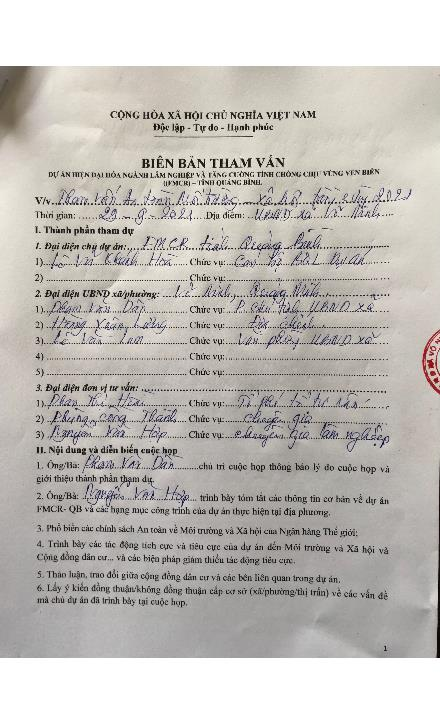 CỘNG HÒA XÃ HỘI CHỦ NGHĨA VIỆT NAM
Độc lập - Tự do - Hạnh phúc
BIÊN BẢN THAM VẤN
DỰ ÁN HIỆN ĐẠI HÓA NGÀNH LÂM NGHIỆP VÀ TĂNG CƯỜNG TÍNH CHỐNG CHỊU VÙNG VEN BIỂN
(FMCR) – TỈNH QUẢNG BÌNH.
V/v Tham vấn An toàn Môi trường xã hội
Thời gian: 22-9-2021 Địa điểm: UBND xã Võ Ninh
I. Thành phần tham dự
1. Đại diện chủ dự án: FMCR tỉnh Quảng Bình
1) Khánh Hoà Chức vụ: Cán bộ Dự án
2) Chức vụ:
2. Đại diện UBND xã/phường: Võ Ninh, Quảng Ninh
1) Phạm Văn Dần Chức vụ: P. Chủ tịch UBND xã
2) Hoàng Xuân Chức vụ: Địa chính
3) Lê Văn Chức vụ: Văn phòng UBND xã
4) Chức vụ:
5) Chức vụ:
3. Đại diện đơn vị tư vấn:
1) Phan Thị Chức vụ: tư vấn
2) Phùng Công Thành Chức vụ: chuyên gia
3) Nguyễn Văn Hợp Chức vụ: chuyên gia lâm nghiệp
II. Nội dung và diễn biến cuộc họp
1. Ông/Bà: Phạm Văn Dần chủ trì cuộc họp thông báo lý do cuộc họp và
giới thiệu thành phần tham dự.
2. Ông/Bà: Nguyễn Văn Hợp trình bày tóm tắt các thông tin cơ bản về dự án
FMCR- QB và các hạng mục công trình của dự án thực hiện tại địa phương.
3. Phổ biến các chính sách An toàn về Môi trường và Xã hội của Ngân hàng Thế giới;
4. Trình bày các tác động tích cực và tiêu cực của dự án đến Môi trường và Xã hội và
Cộng đồng dân cư... và các biện pháp giảm thiểu tác động tiêu cực.
5. Thảo luận, trao đổi giữa cộng đồng dân cư và các bên liên quan trong dự án.
6. Lấy ý kiến đồng thuận/không đồng thuận cấp cơ sở (xã/phường/thị trấn) về các vấn đề
mà chủ dự án đã trình bày tại cuộc họp.
1